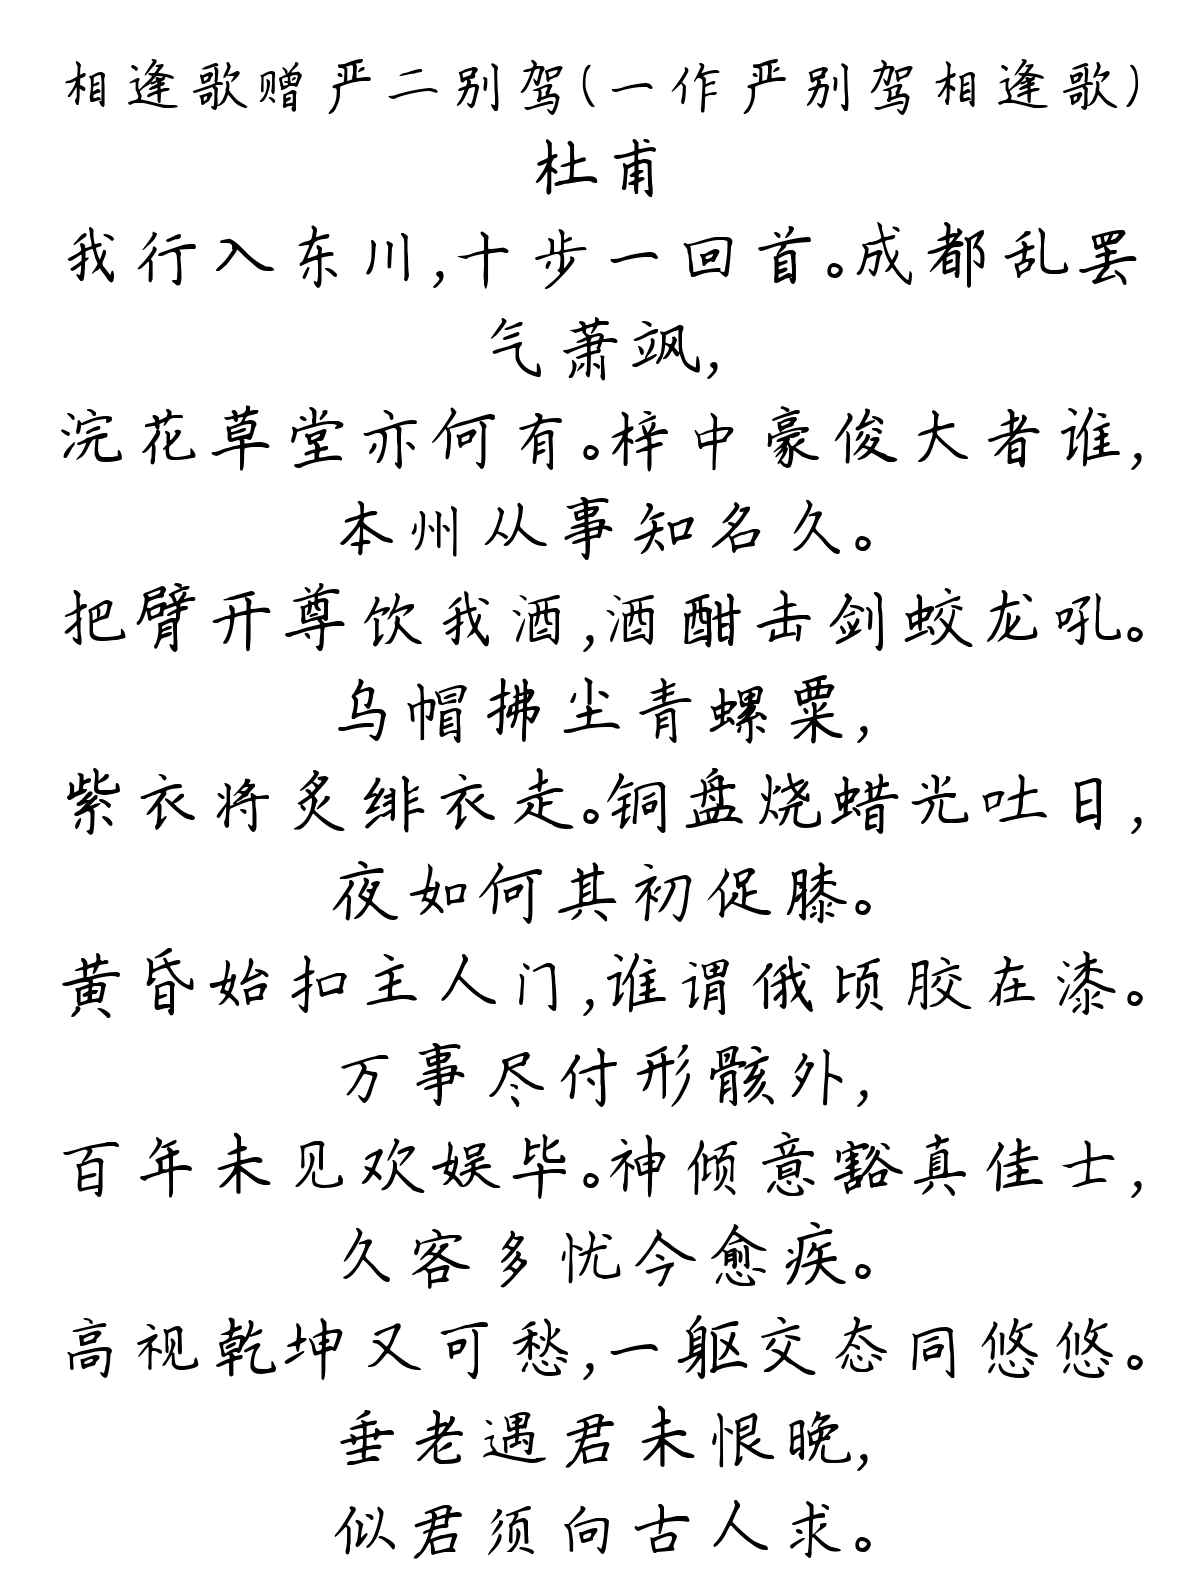 相逢歌赠严二别驾(一作严别驾相逢歌)
杜甫
我行入东川,十步一回首。成都乱罢
气萧飒,
浣花草堂亦何有。梓中豪俊大者谁,
本州从事知名久。
把臂开尊饮我酒,酒酣击剑蛟龙吼。
乌帽拂尘青螺粟,
紫衣将炙绯衣走。铜盘烧蜡光吐日,
夜如何其初促膝。
黄昏始扣主人门,谁谓俄顷胶在漆。
万事尽付形骸外,
百年未见欢娱毕。神倾意豁真佳士,
久客多忧今愈疾。
高视乾坤又可愁,一躯交态同悠悠。
垂老遇君未恨晚,
似君须向古人求。